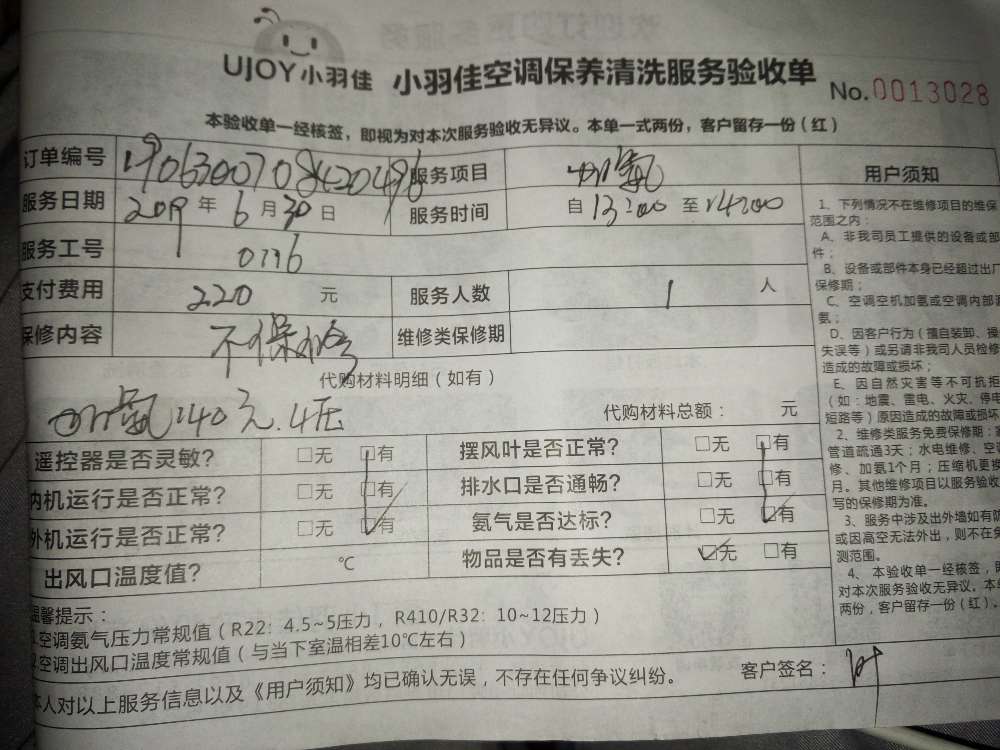 UJOY小羽佳 小羽佳空调保养清洗服务验收单 No.0013028
本验收单一经核签，即视为对本次服务验收无异议。本单一式两份，客户留存一份（红）
订单编号 服务项目 加氟 用户须知
服务日期 2019年6月30日 服务时间 自13:00至14:00
服务工号
支付费用 220 元 服务人数 1 人
保修内容 不保修 维修类保修期
代购材料明细（如有）
加氟 240元.4压 代购材料总额： 元
遥控器是否灵敏？ □无 □有 摆风叶是否正常？ □无 □有
内机运行是否正常？ □无 □有 排水口是否通畅？ □无 □有
外机运行是否正常？ □无 □有 氨气是否达标？ □无 □有
出风口温度值？ ℃ 物品是否有丢失？ □无 □有
1、下列情况不在维修项目的维保
范围之内：
A、非我司员工提供的设备或部
件；
B、设备或部件本身已经超过出厂
保修期；
C、空调空机加氨或空调内部
氨；
D、因客户行为（擅自装卸、操
失误等）或另请非我司人员检修
造成的故障或损坏；
E、因自然灾害等不可抗拒
（如：地震、雷电、火灾、停电
短路等）原因造成的故障或损坏
2、维修类服务免费保修期：
管道疏通3天；水电维修、空
修、加氨1个月；压缩机更换
月。其他维修项目以服务验收
写的保修期为准。
3、服务中涉及出外墙如有防
或因高空无法外出，则不在
测范围。
4、本验收单一经核签，即
对本次服务验收无异议。本单
两份，客户留存一份（红）。
温馨提示：
1.空调氨气压力常规值（R22: 4.5~5压力，R410/R32: 10~12压力）
2.空调出风口温度常规值（与当下室温相差10℃左右）
本人对以上服务信息以及《用户须知》均已确认无误，不存在任何争议纠纷。 客户签名：